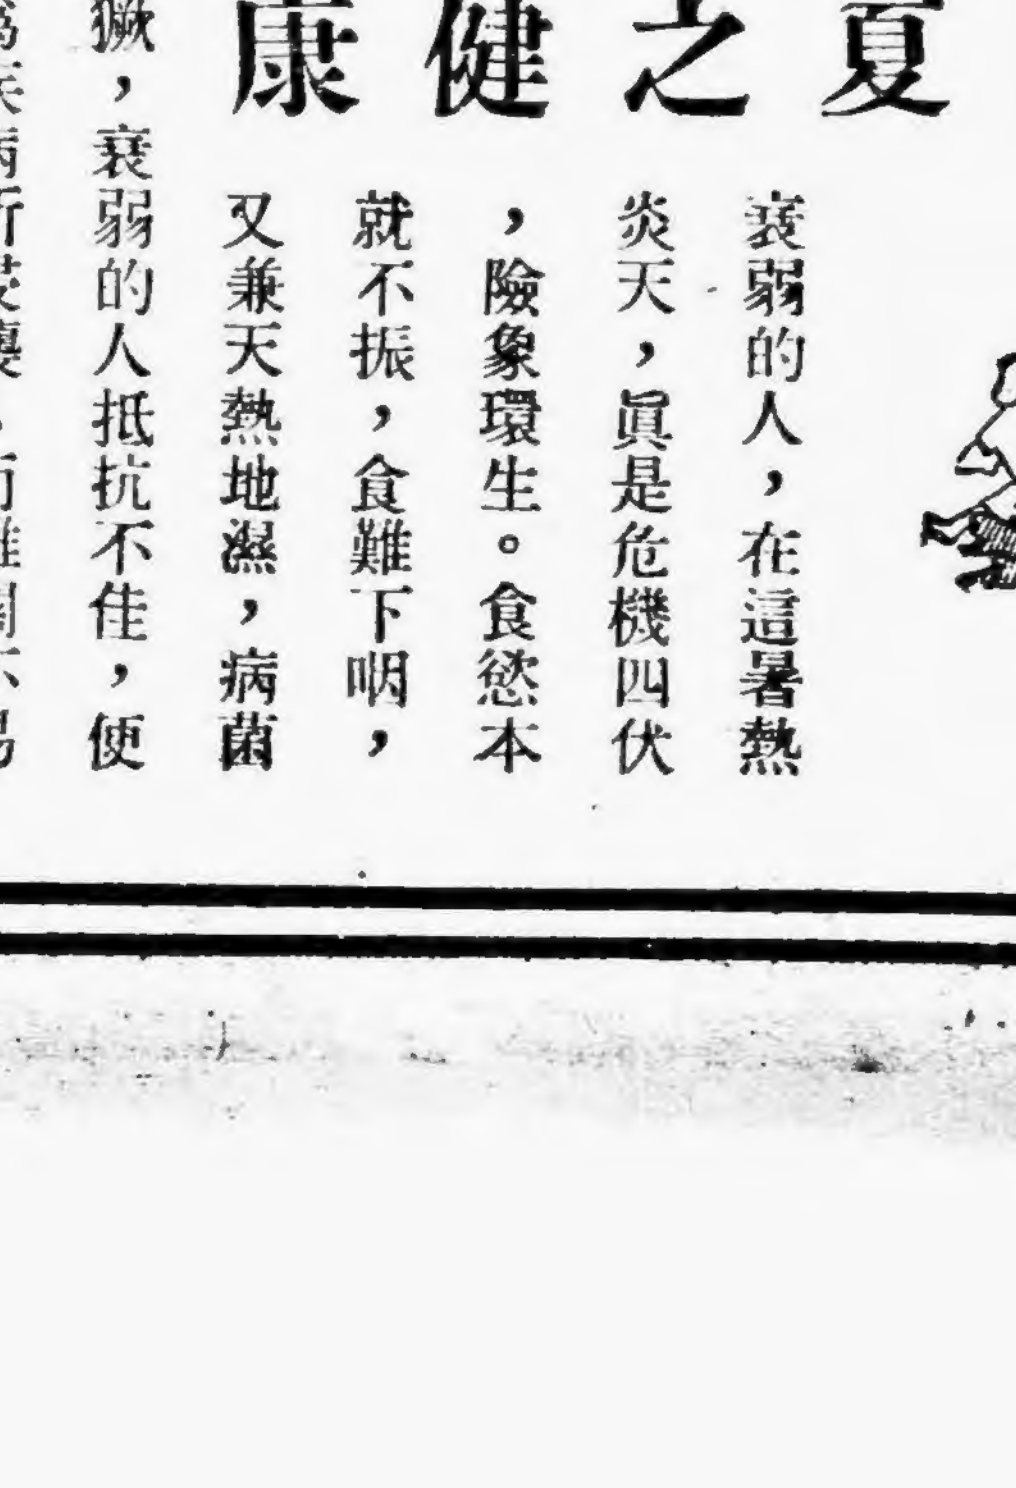 夏之健康
衰弱的人，在這暑熱
炎天，眞是危機四伏
，險象環生。食慾本
就不振，食難下咽，
又兼天熱地濕，病菌
獗，衰弱的人抵抗不佳，便